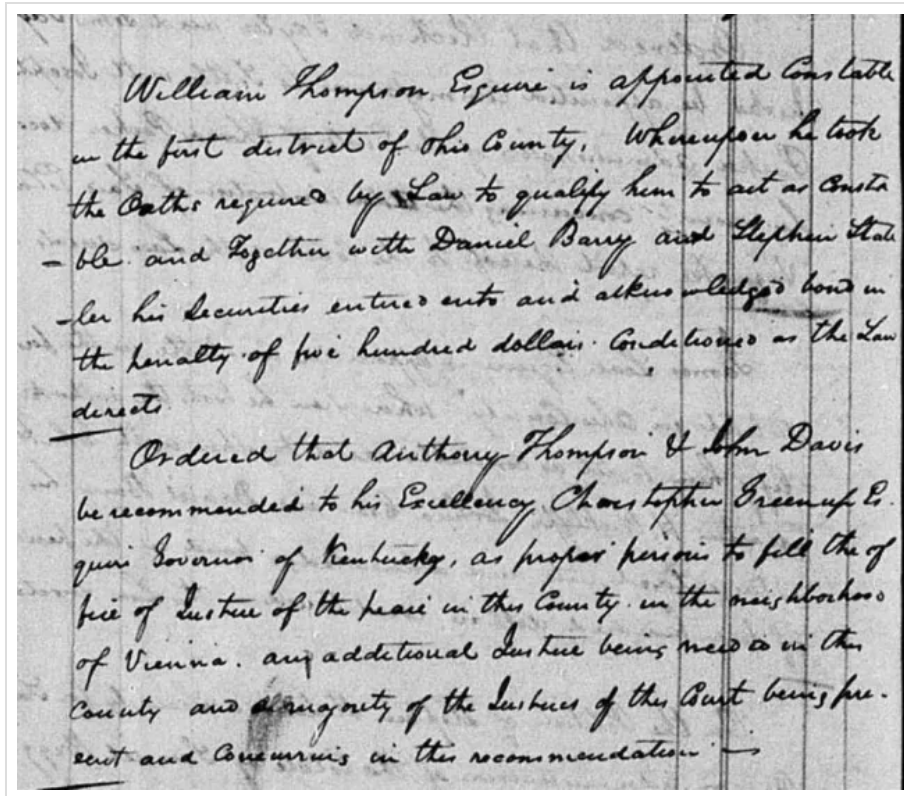 William Thompson Esquire is appointed Constable
in the first district of Ohio County. Whereupon he took
the Oaths required by Law to qualify him to act as Consta
- ble. and Together with Daniel Barry and Stephen State
- ler his Securities entered into and acknowledged bond in
the penalty of five hundred dollars. Conditioned as the Law
directs.
Ordered that Anthony Thompson & John Davis
be recommended to his Excellency Christopher Greenup Es.
quire Governor of Kentucky, as proper persons to fill the of
fice of Justice of the peace in this County. in the neighborhood
of Vienna. an additional Justice being needed in this
County and a majority of the Justices of this Court being pre-
sent and Concurring in this recommendation —